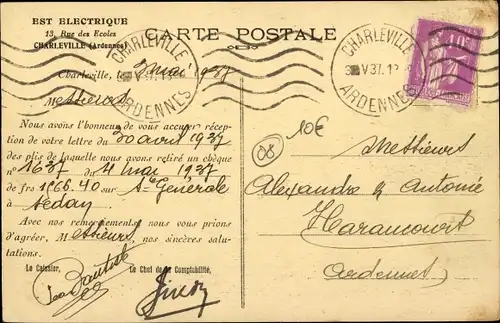 EST ELECTRIQUE
13, Rue des Ecoles
CHARLEVILLE (Ardennes)
CARTE POSTALE
CHARLEVILLE
ARDENNES
CHARLEVILLE
V 37
ARDENNES
Charleville, le 3 mai 1937
Messieurs
Nous avons l'honneur de vous accuser récep-
tion de votre lettre du 30 avril 1937
des plis de laquelle nous avons retiré un chèque
n° 1637 du 4 mai 1937
de frs 1966.40 sur Sté Générale
à Sedan
Avec nos remerciements nous vous prions
d'agréer, Messieurs, nos sincères salu-
tations.
Le Caissier, Le Chef de la Comptabilité,
08
10€
Messieurs
Alexandre & Antoine
Haraucourt
Ardennes